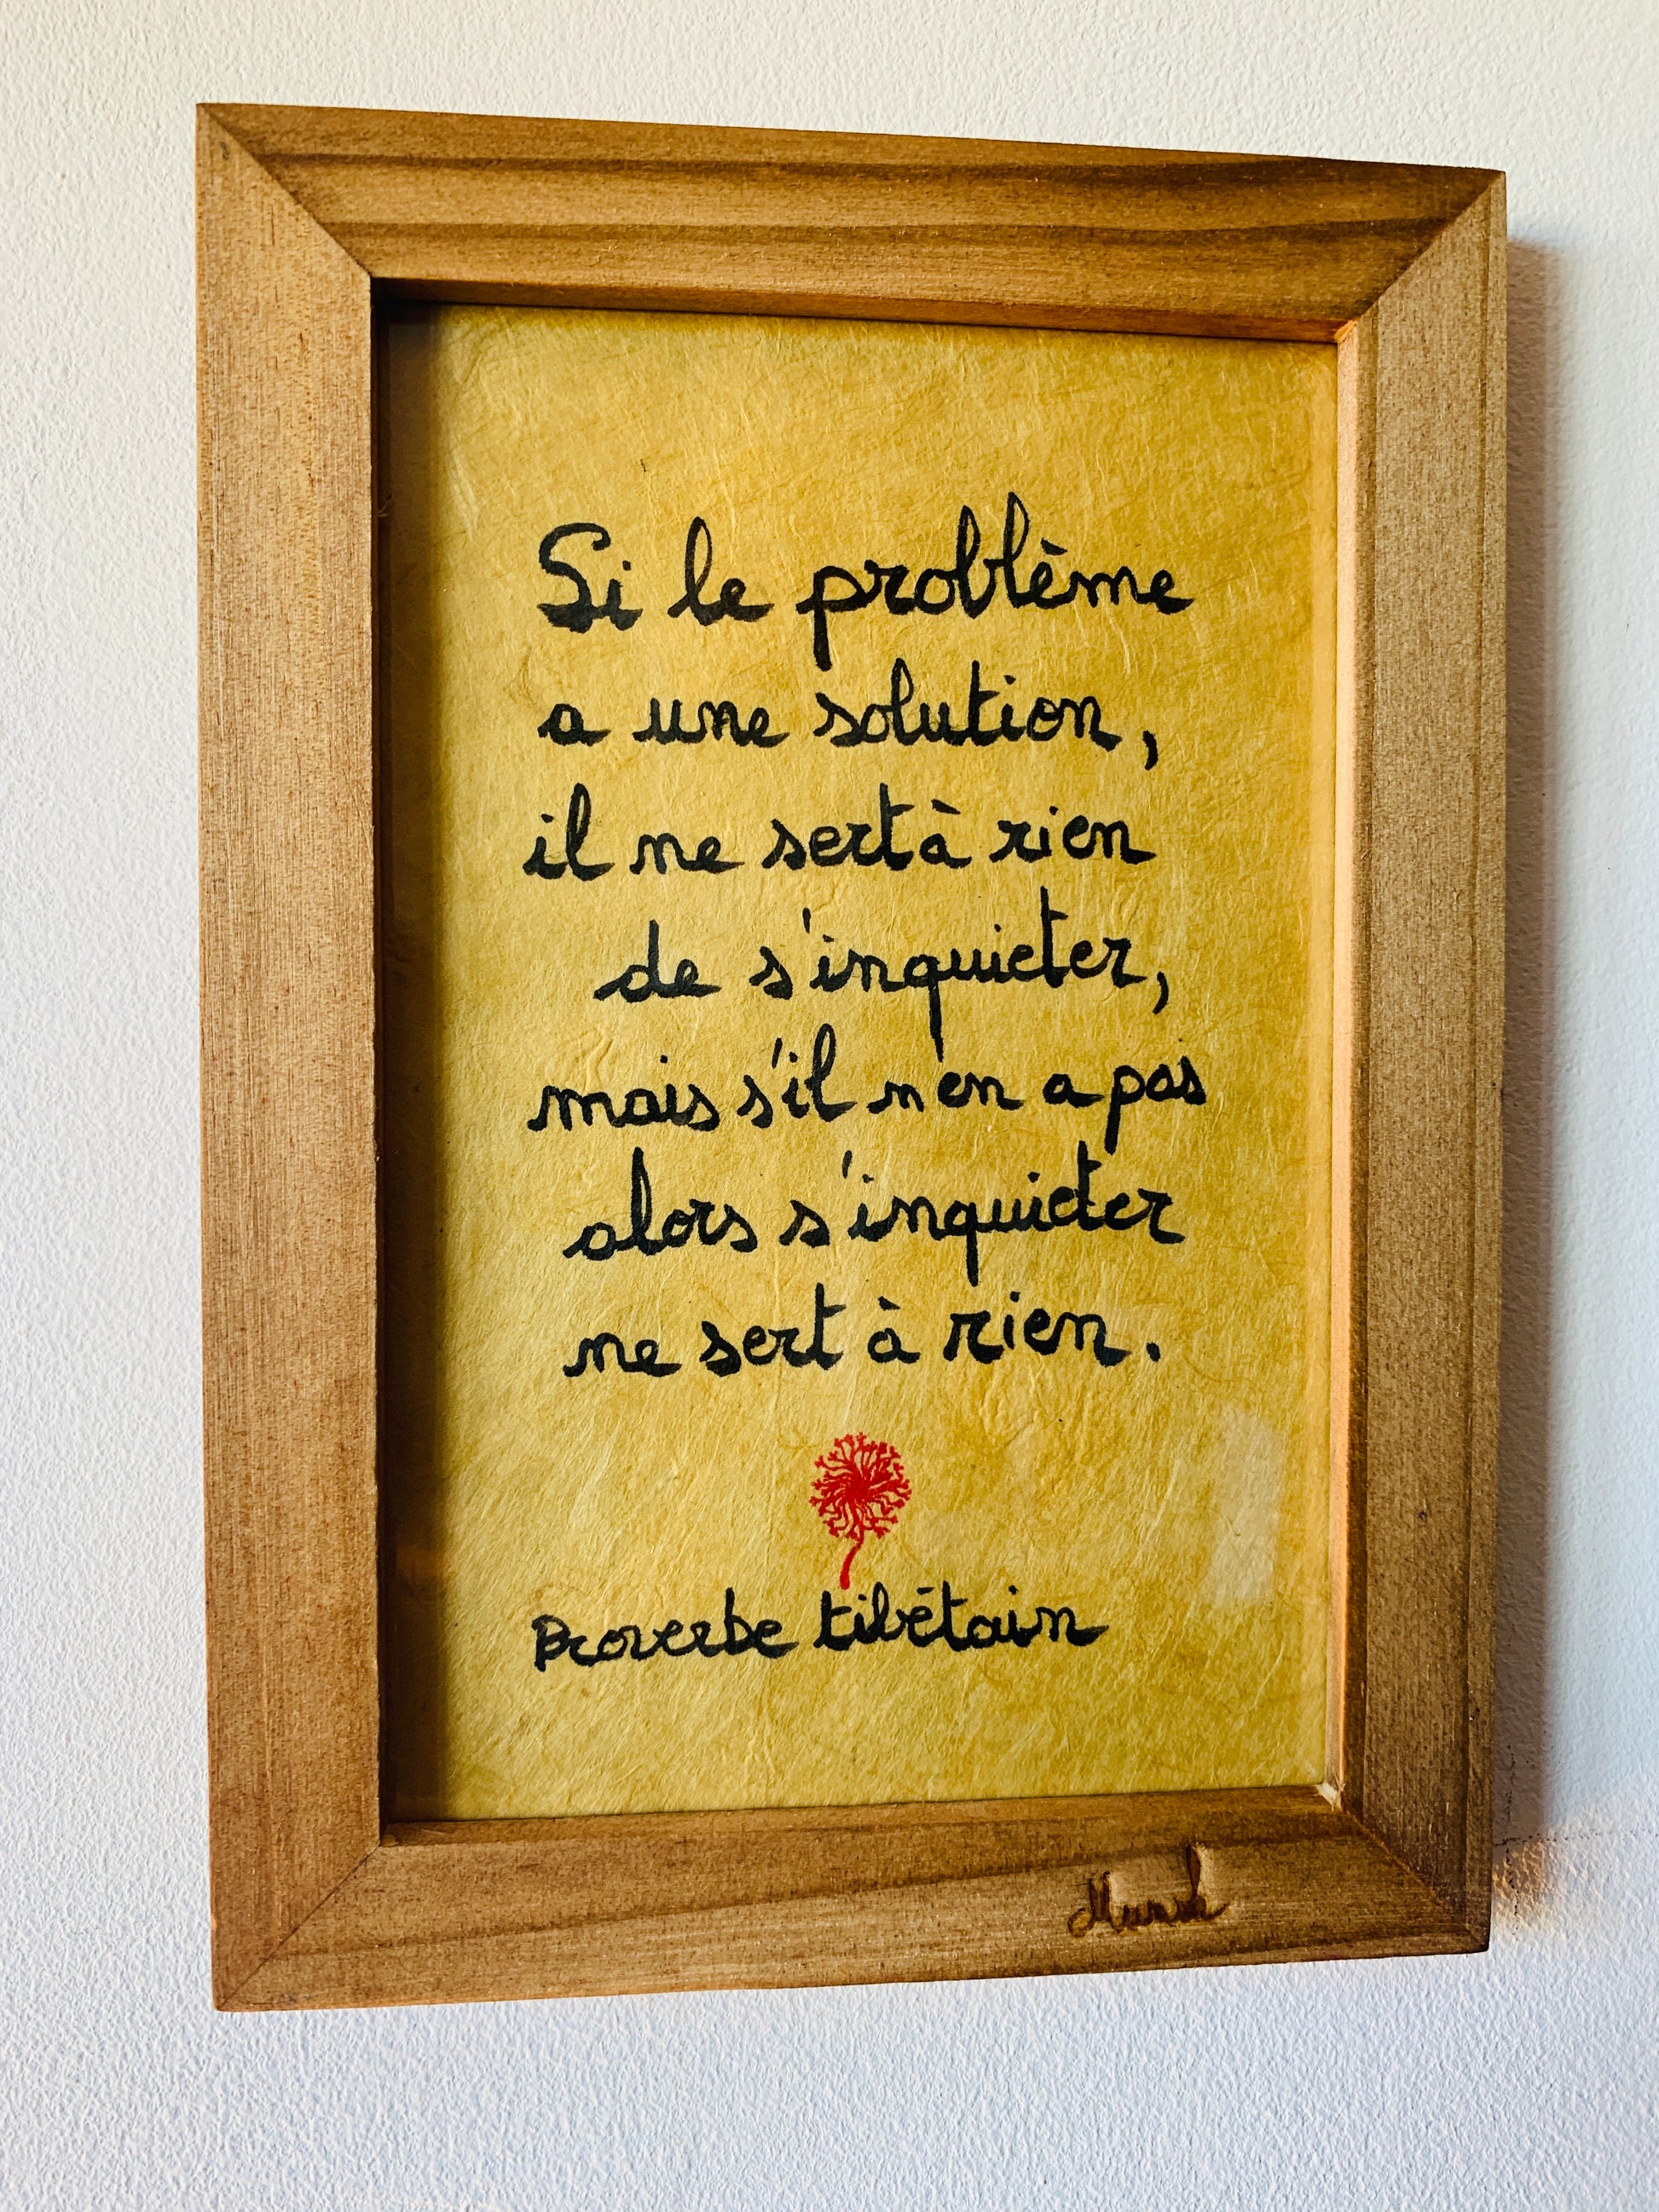 Si le problème
a une solution,
il ne sert à rien
de s'inquieter,
mais s'il n en a pas
alors s'inquieter
ne sert à rien.
Proverbe tibétain